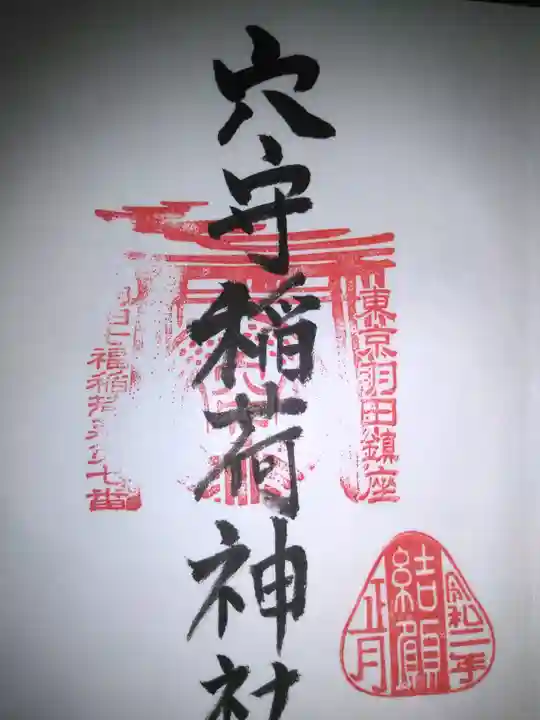 穴守稲荷神社
東京羽田鎮座
福稲荷
七番
令和二年
結願
正月